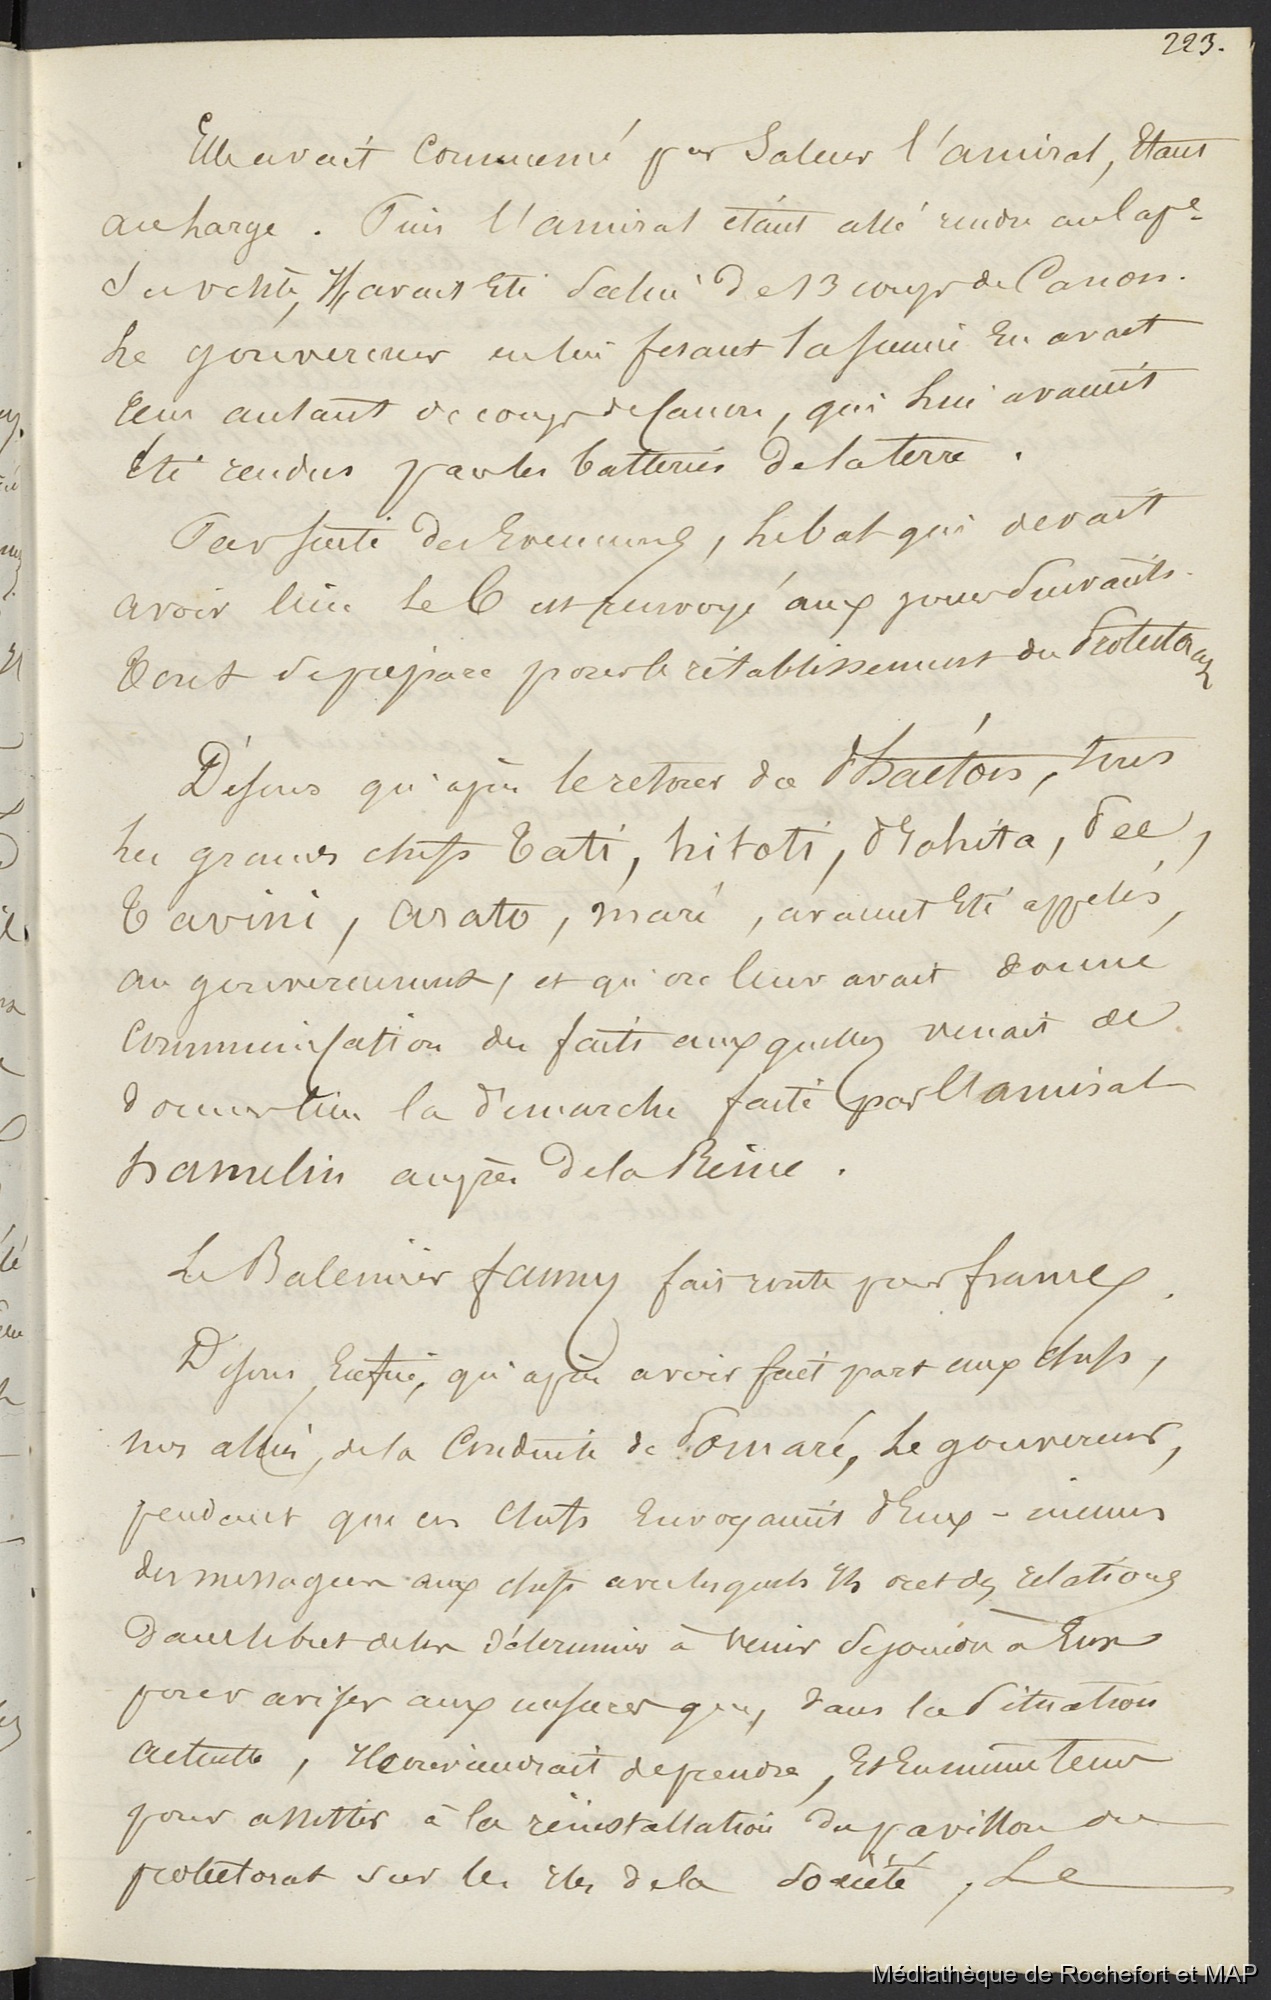 223.
Elle avait commencé par Saluer l'amiral, Etant
au large. Puis l'amiral étant allé rendre au Cape
Sa visite, Il avait Eté Salué de 13 coups de Canon.
Le gouverneur en lui fesant la sienne En avait
Eu autant de coups de Canon, qui lui avaient
Eté rendus par les batteries de la terre.
Par suite des Evenemens, le bal qui devait
avoir lieu le 6 est renvoyé aux jours Suivants.
Tout se prépare pour le rétablissement du Protectorat
Disons qu'après le retour du Phaéton, tous
les grands chefs Tati, hitoti, Pee,
Tavini, arato, maré, avaient Eté appelés,
au gouvernement, et qu'on leur avait donné
Communication des faits auxquels venait de
donner lieu la démarche faite par l'amiral
hamelin auprès de la Reine.
Le Baleinier fanny fait route pour france.
Disons Enfin, qu'après avoir fait part aux chefs,
nos alliés, de la Conduite de Pomaré, le gouverneur,
pendant que ces chefs Envoyaient d'Eux-mêmes
des messagers aux chefs avec lesquels Ils ont des relations
dans le but de les déterminer à venir se joindre à Eux
pour aviser aux mesures que, dans la Situation
actuelle, Il conviendrait de prendre, Et En même tems
pour assister à la réinstallation du pavillon du
protectorat sur les Iles de la Société, Le
Médiathèque de Rochefort et MAP